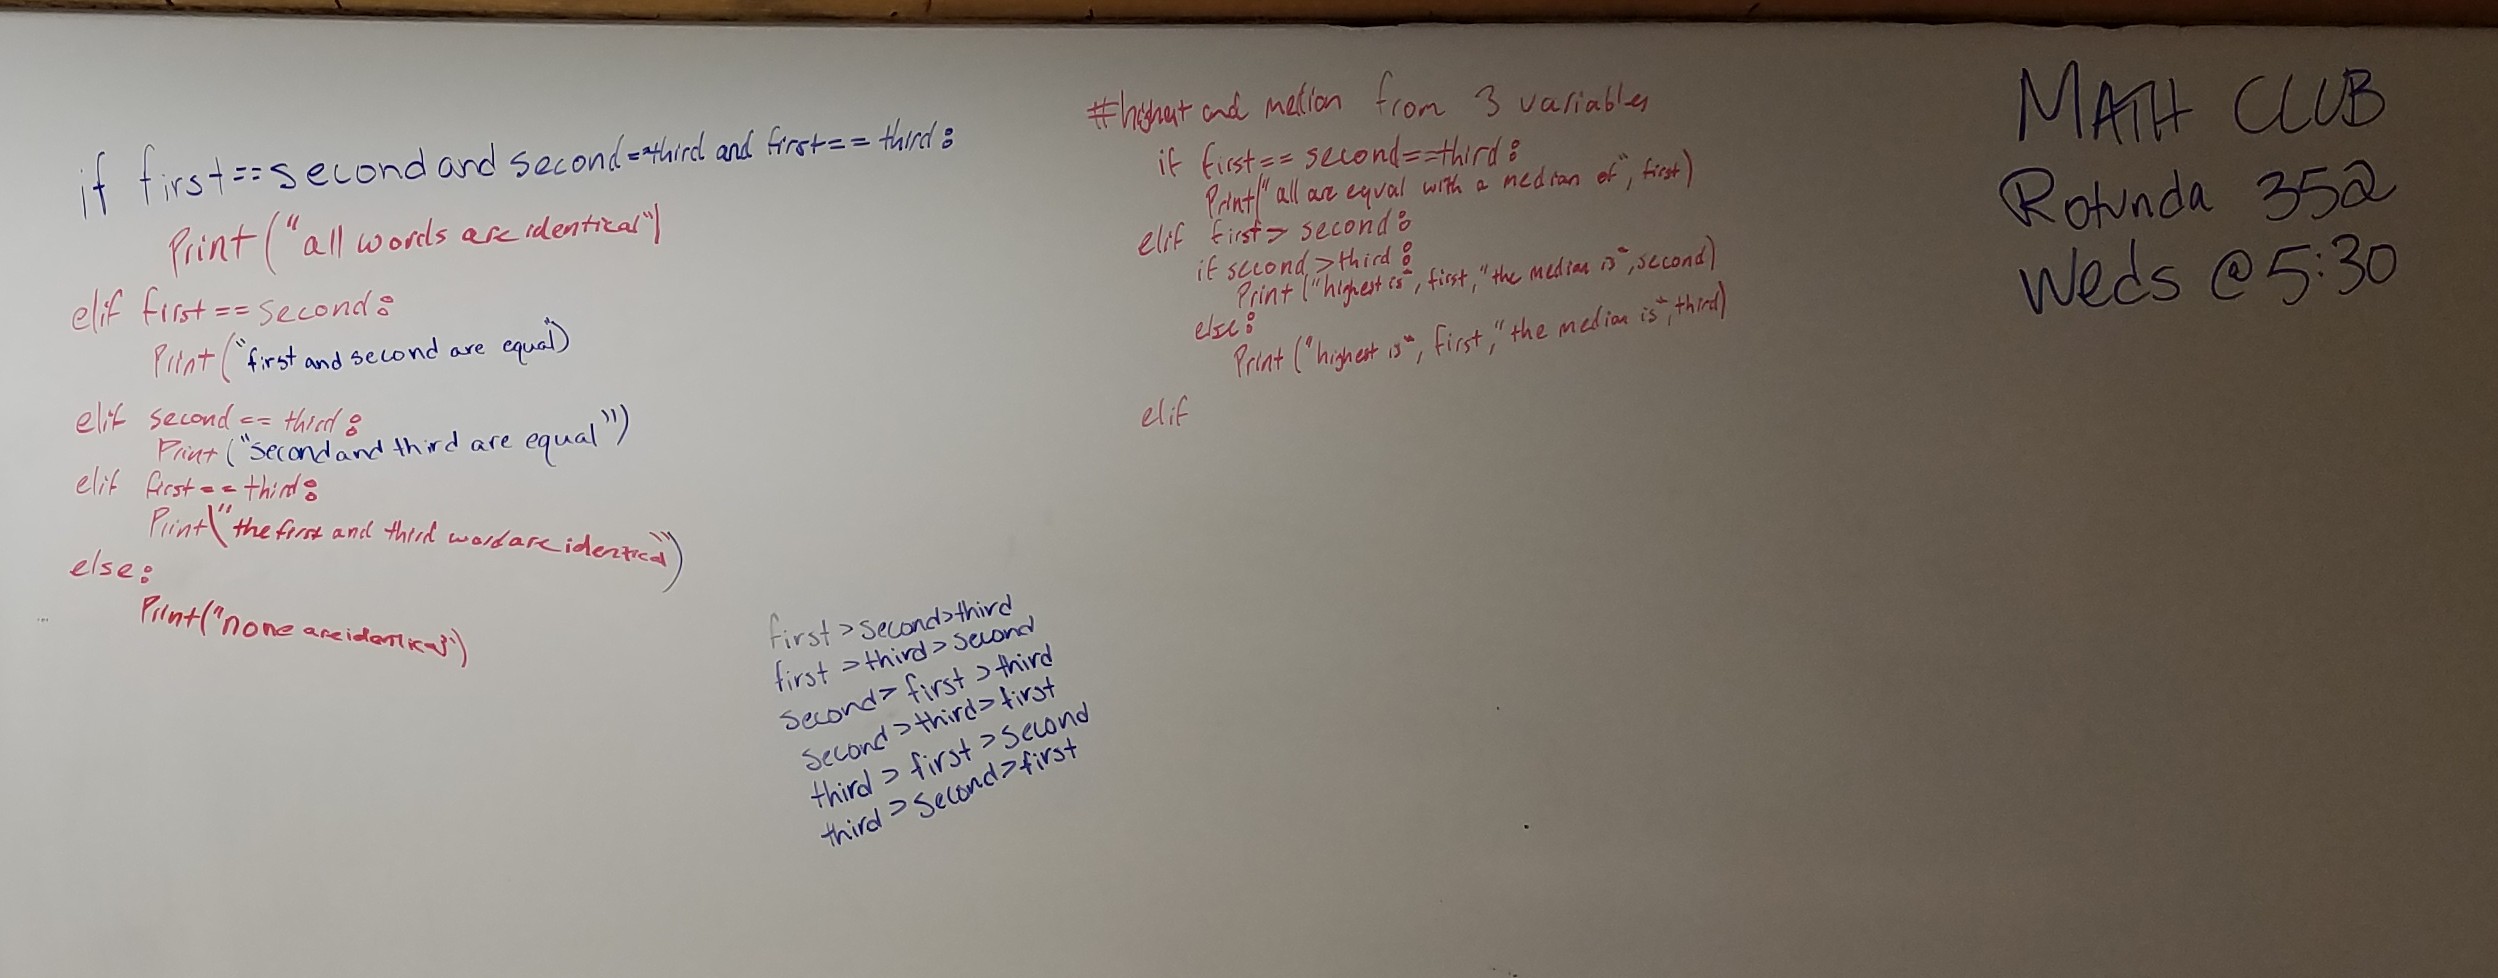 if first==second and second==third and first==third:
Print("all words are identical")
elif first==second:
Print("first and second are equal")
elif second==third:
Print("second and third are equal")
elif first==third:
Print("the first and third word are identical")
else:
Print("none are identical")
first>second>third
first>third>second
second>first>third
second>third>first
third>first>second
third>second>first
#highest and median from 3 variables
if first==second==third:
Print("all are equal with a median of", first)
elif first>second:
if second>third:
Print("highest is", first, "the median is", second)
else:
Print("highest is", first, "the median is", third)
elif
MATH CLUB
Rotunda 352
Weds @ 5:30